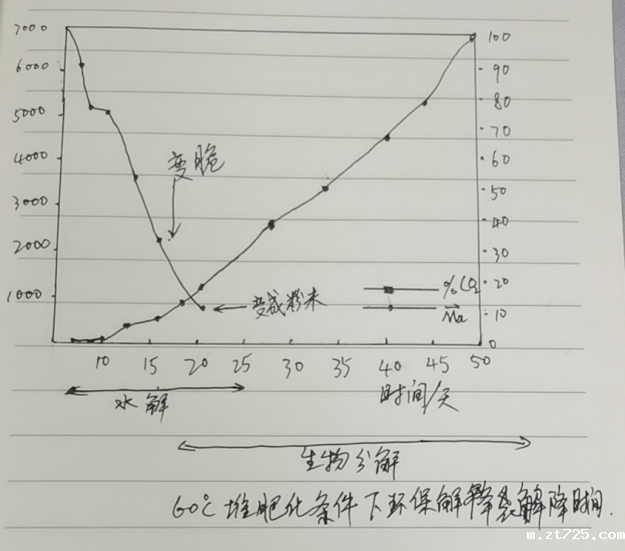 7000
6000
5000
4000
3000
2000
1000
100
90
80
70
60
50
40
30
20
10
0
变脆
变成粉末
%CO2
Mn
10 15 20 25 30 35 40 45 50
时间/天
水解
生物分解
60℃堆肥化条件下环保解降袋解降时间.
m.zt725.com